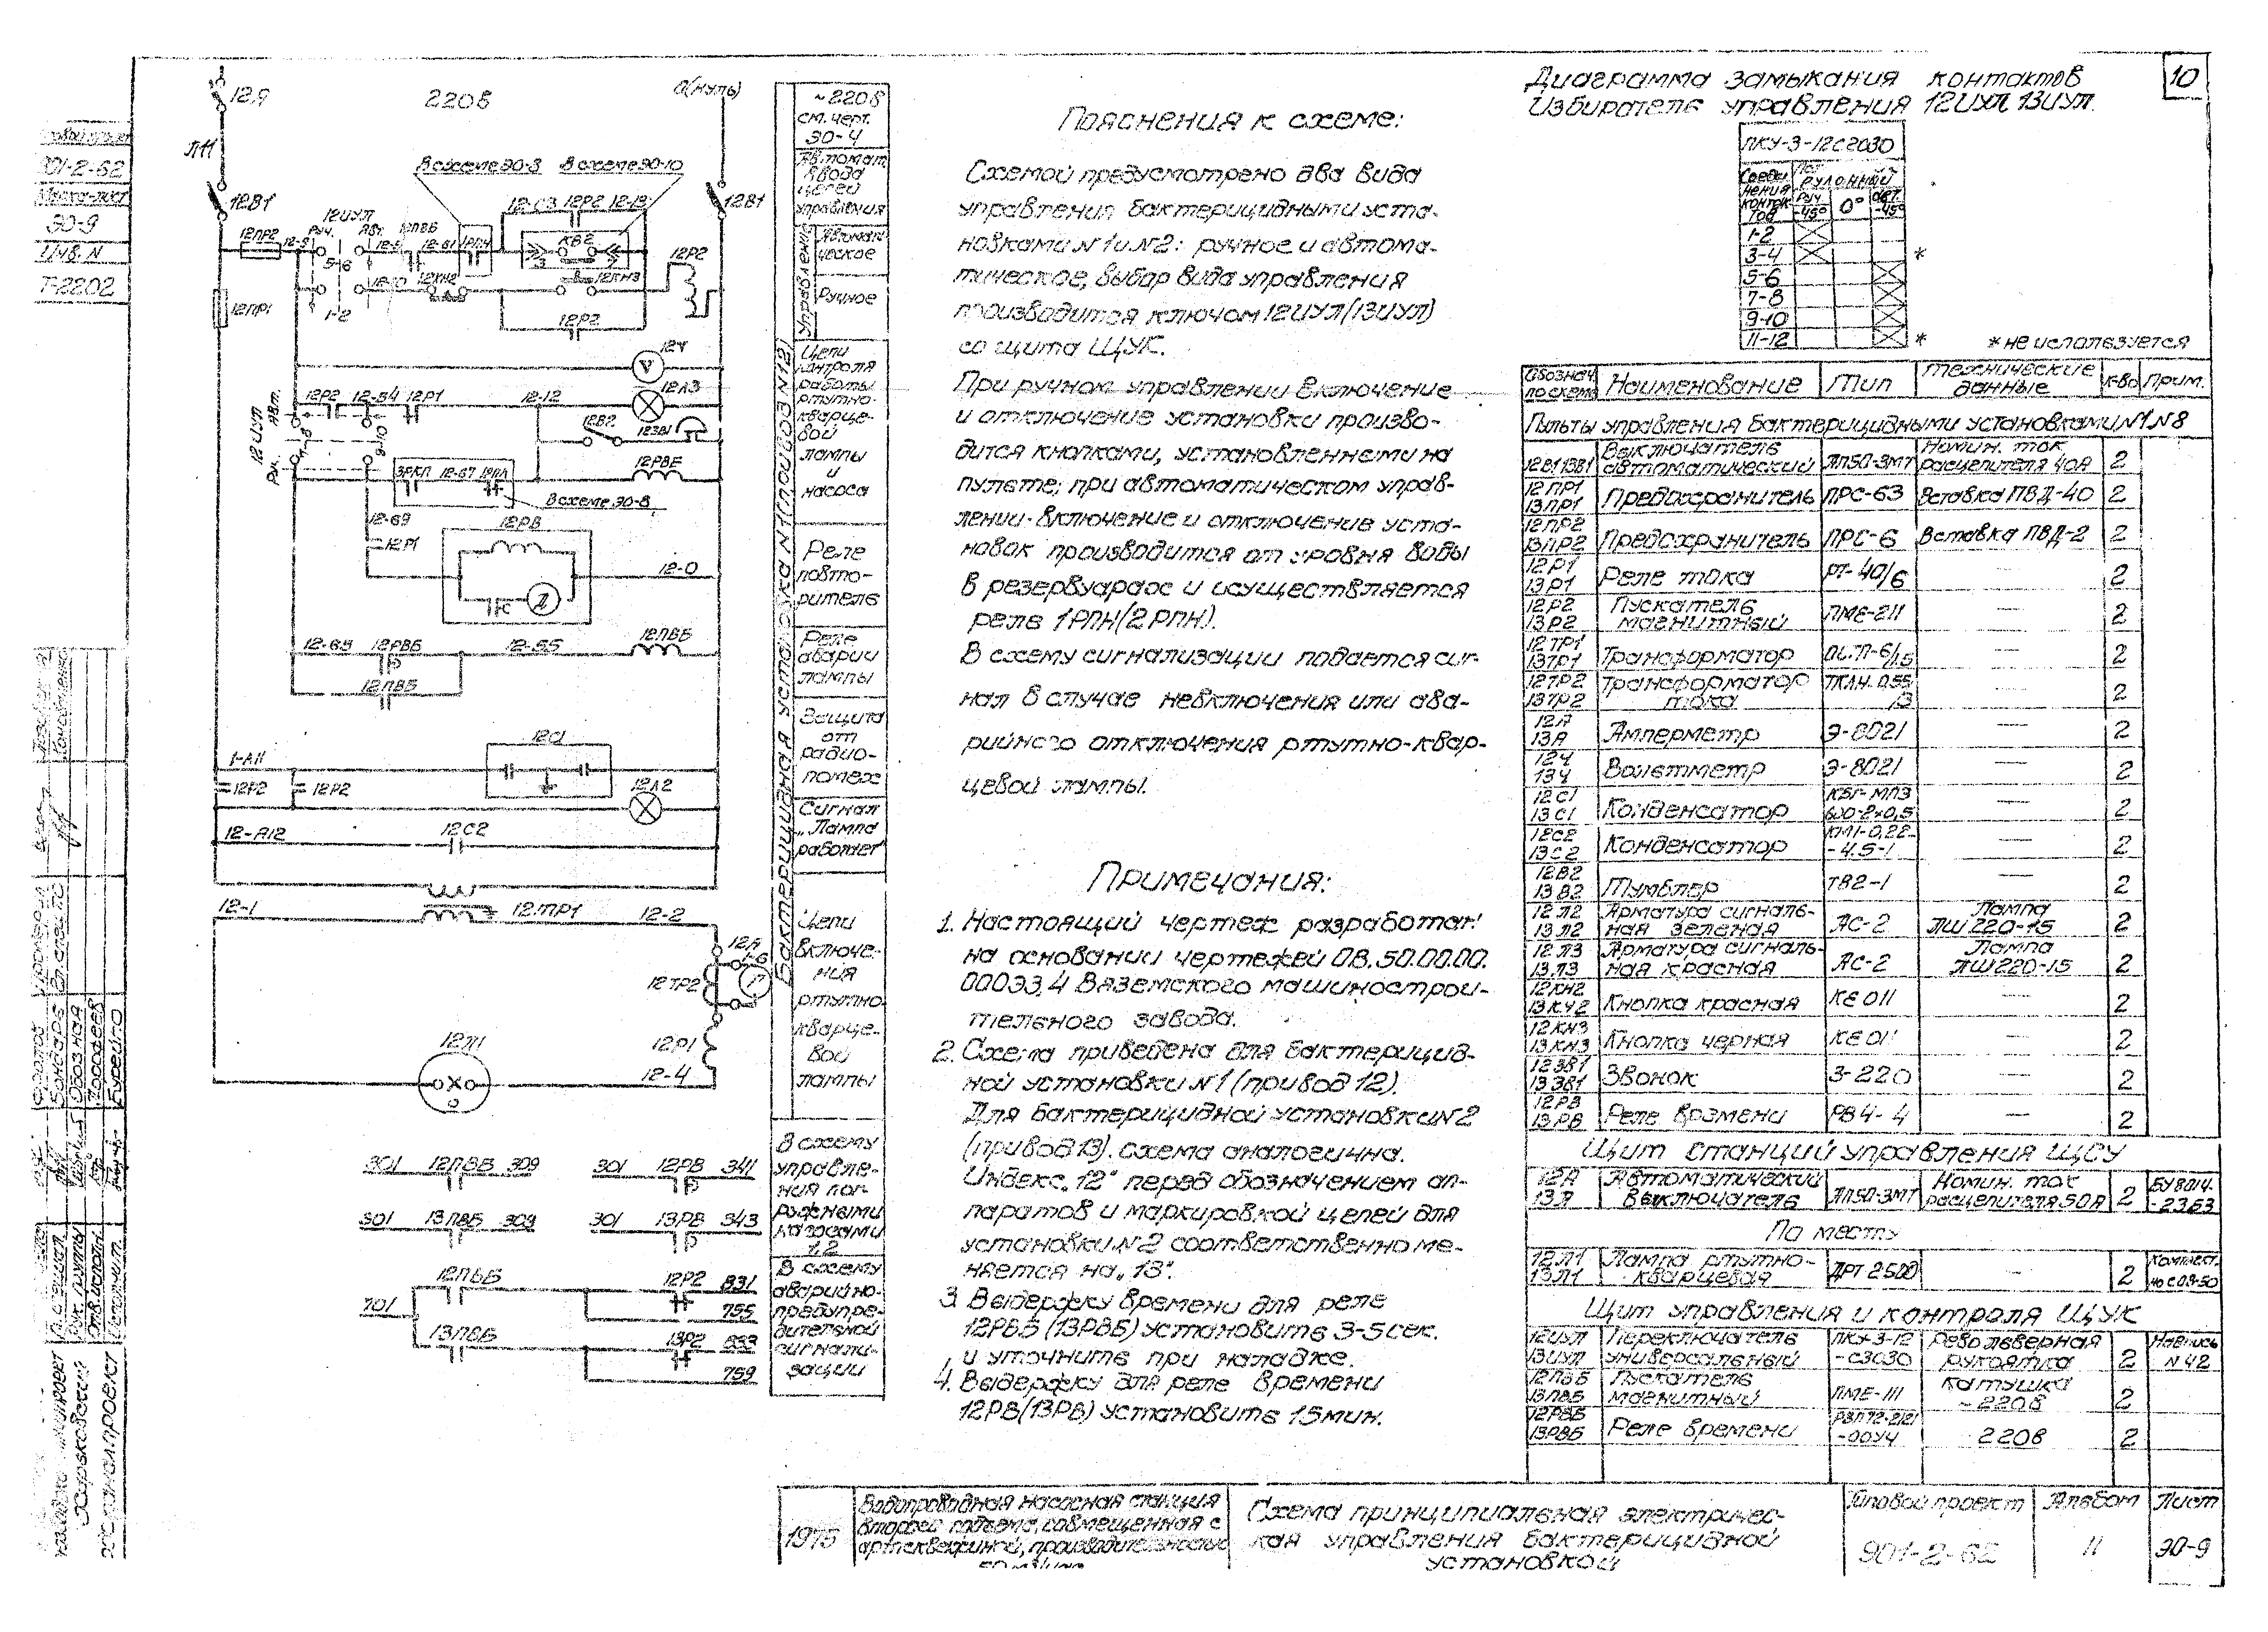 10
Диаграмма замыкания контактов
Избирателя управления 12ИУП 13ИУП.
ПКУ-3-12С2030
Соеди
нения
контак
тов
РУКОЯТКИ
Руч.
-45°
0°
Авт.
+45°
1-2
3-4
*
5-6
7-8
9-10
11-12
*
* не используется
901-2-62
ЭО-9
Инв. N
Т-2202
12А
220В
0(нуль)
А11
12В1
12В1
В схеме ЭО-3
В схеме ЭО-10
12-С3 12Р2 12-13
12ПР2
12-3
Руч.
12ИУП
Авт.
5-6
12ПВБ
12-61
1РПН
КВ2
12Р2
12ПР1
1-2
12-10
12КН2
12КН3
12Р2
12V
12Л3
12Р2 12-54 12Р1
12-12
12ИУП
Авт.
Руч.
7-8
9-10
12В2
12ЗВ1
12РВБ
3РКП 12-67
В схеме ЭО-8
12-69
12Р1
12РВ
Д
12-0
12-65 12РВБ
12-55
12ПВБ
12ПВБ
1-А11
12С1
12Р2
12Р2
12Л2
12-А12
12С2
12-1
12ТР1
12-2
12А
12ТР2
12Р1
12-4
12Л1
301 12ПВБ 309
301 12РВ 341
301 13ПВБ 309
301 13РВ 343
12ПВБ
12Р2 831
701
755
13ПВБ
13Р2 833
759
Бактерицидная установка N1(привод N12)
~220В
см. черт.
ЭО-4
Автомат
ввода
цепей
управления
Управление
Автомати
ческое
Ручное
Цепи
контроля
работы
ртутно-
кварце-
вой
лампы
и
насоса
Реле
повто-
ритель
Реле
аварии
лампы
Защита
от
радио-
помех
Сигнал
„Лампа
работает"
Цепи
включе-
ния
ртутно
кварце-
вой
лампы
В схему
управле-
ния пог-
ружными
насосами
1,2
В схему
аварийно-
предупре-
дительной
сигнали-
зации
Пояснения к схеме:
Схемой предусмотрено два вида
управления бактерицидными уста-
новками N1 и N2: ручное и автома-
тическое, выбор вида управления
производится ключом 12ИУП(13ИУП)
со щита ЩУК.
При ручном управлении включение
и отключение установки произво-
дится кнопками, установленными на
пульте; при автоматическом управ-
лении-включение и отключение уста-
новок производится от уровня воды
в резервуарах и осуществляется
реле 1РПН(2РПН).
В схему сигнализации подается сиг-
нал в случае невключения или ава-
рийного отключения ртутно-квар-
цевой лампы.
Примечания:
1. Настоящий чертеж разработан
на основании чертежей 08.50.00.00.
000ЭЗ,4 Вяземского машинострои-
тельного завода.
2. Схема приведена для бактерицид-
ной установки N1 (привод 12).
Для бактерицидной установки N2
(привод 13). схема аналогична.
Индекс „12" перед обозначением ап-
паратов и маркировкой цепей для
установки N2 соответственно ме-
няется на „13".
3. Выдержку времени для реле
12РВБ (13РВБ) установить 3-5 сек.
и уточнить при наладке.
4. Выдержку для реле времени
12РВ(13РВ) установить 15мин.
Обознач.
по схеме
Наименование
Тип
Технические
данные
К-во
Прим.
Пульты управления бактерицидными установками N1, N8
12В1 13В1 Выключатель автоматический АП50-3МТ Номин. ток расцепителя 40А 2
12ПР1 13ПР1 Предохранитель ПРС-63 Вставка ПВД-40 2
12ПР2 13ПР2 Предохранитель ПРС-6 Вставка ПВД-2 2
12Р1 13Р1 Реле тока РТ-40/6 — 2
12Р2 13Р2 Пускатель магнитный ПМЕ-211 — 2
12ТР1 13ТР1 Трансформатор 6/1,5 — 2
12ТР2 13ТР2 Трансформатор тока — 2
12А 13А Амперметр Э-8021 — 2
12V 13V Вольтметр Э-8021 — 2
12С1 13С1 Конденсатор КБГ-МП3 600-2х0,5 — 2
12С2 13С2 Конденсатор -4.5-1 — 2
12В2 13В2 Тумблер ТВ2-1 — 2
12Л2 13Л2 Арматура сигналь- ная зеленая АС-2 Лампа ЛШ 220-15 2
12Л3 13Л3 Арматура сигналь- ная красная АС-2 Лампа ЛШ220-15 2
12КН2 13КУ2 Кнопка красная КЕ 011 — 2
12КН3 13КН3 Кнопка черная КЕ 011 — 2
12ЗВ1 13ЗВ1 Звонок З-220 — 2
12РВ 13РВ Реле времени РВ4-4 — 2
Щит станций управления ЩСУ
12А 13А Автоматический выключатель АП50-3МТ Номин. ток расцепителя 50А 2 БУ8014. -23Б3
По месту
12Л1 13Л1 Лампа ртутно- кварцевая ДРТ 2500 — 2 Комплект. но с 08-50
Щит управления и контроля ЩУК
12ИУП 13ИУП Переключатель универсальный ПКУ-3-12 -С3030 Револьверная рукоятка 2 Надпись N 42
12ПВБ 13ПВБ Пускатель магнитный ПМЕ-111 катушка ~220В 2
12РВБ 13РВБ Реле времени -00У4 220В 2
1975
Водопроводная насосная станция
второго подъема, совмещенная с
артскважиной, производительностью
Схема принципиальная электричес-
кая управления бактерицидной
установкой
Типовой проект
901-2-62
Альбом
II
Лист
ЭО-9
Бондарь
Обозная
Дорофеев
Бурейко
Рук. группы
Отв. исполн.
Исполнит.
Харьковский